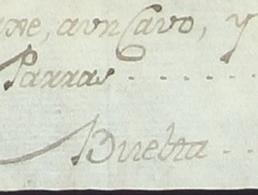 aun Cavo, y
Parras - - - - - -
Buelta - -